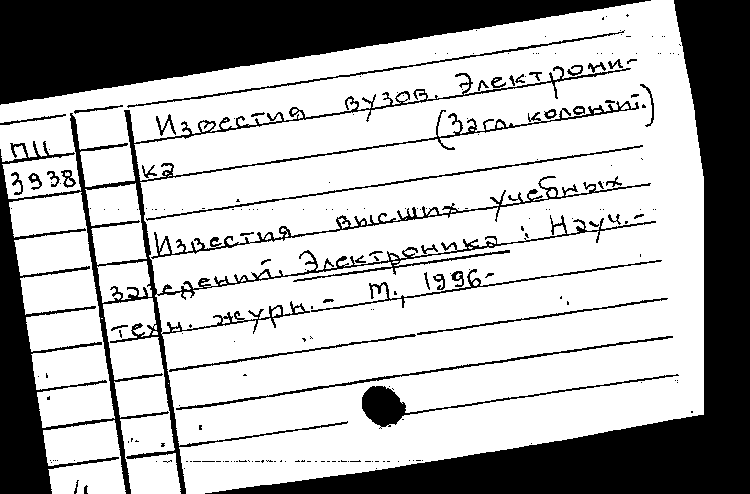 Известия вузов. Электрони-
ка (Загл. колонтит.)
П11
3938
Известия высших учебных
заведений. Электроника : Науч.-
техн. журн. - М., 1996-